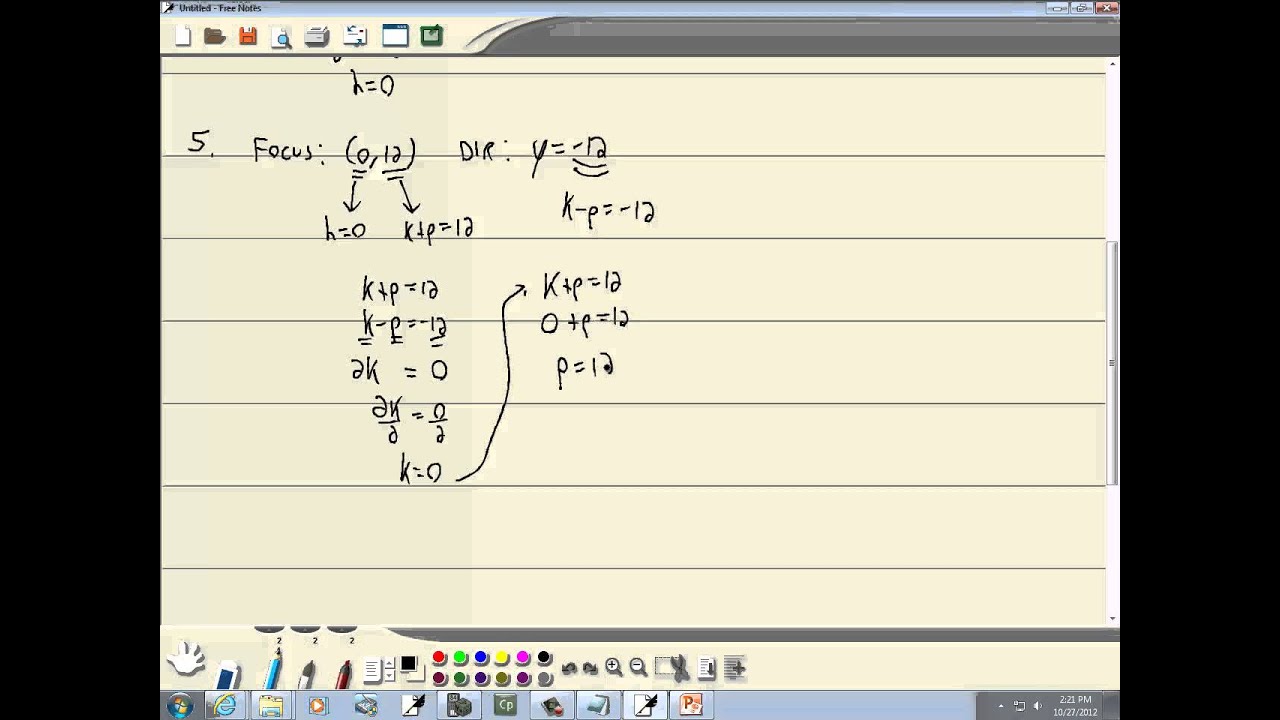 Untitled - Free Notes
h=0
5. Focus: (0,12) DIR: y=-12
k-p=-12
h=0 k+p=12
k+p=12 k+p=12
k-p=-12 0+p=12
2k = 0 p=12
2k/2 = 0/2
k=0
2 2 2
Cp
2:21 PM
10/27/2012